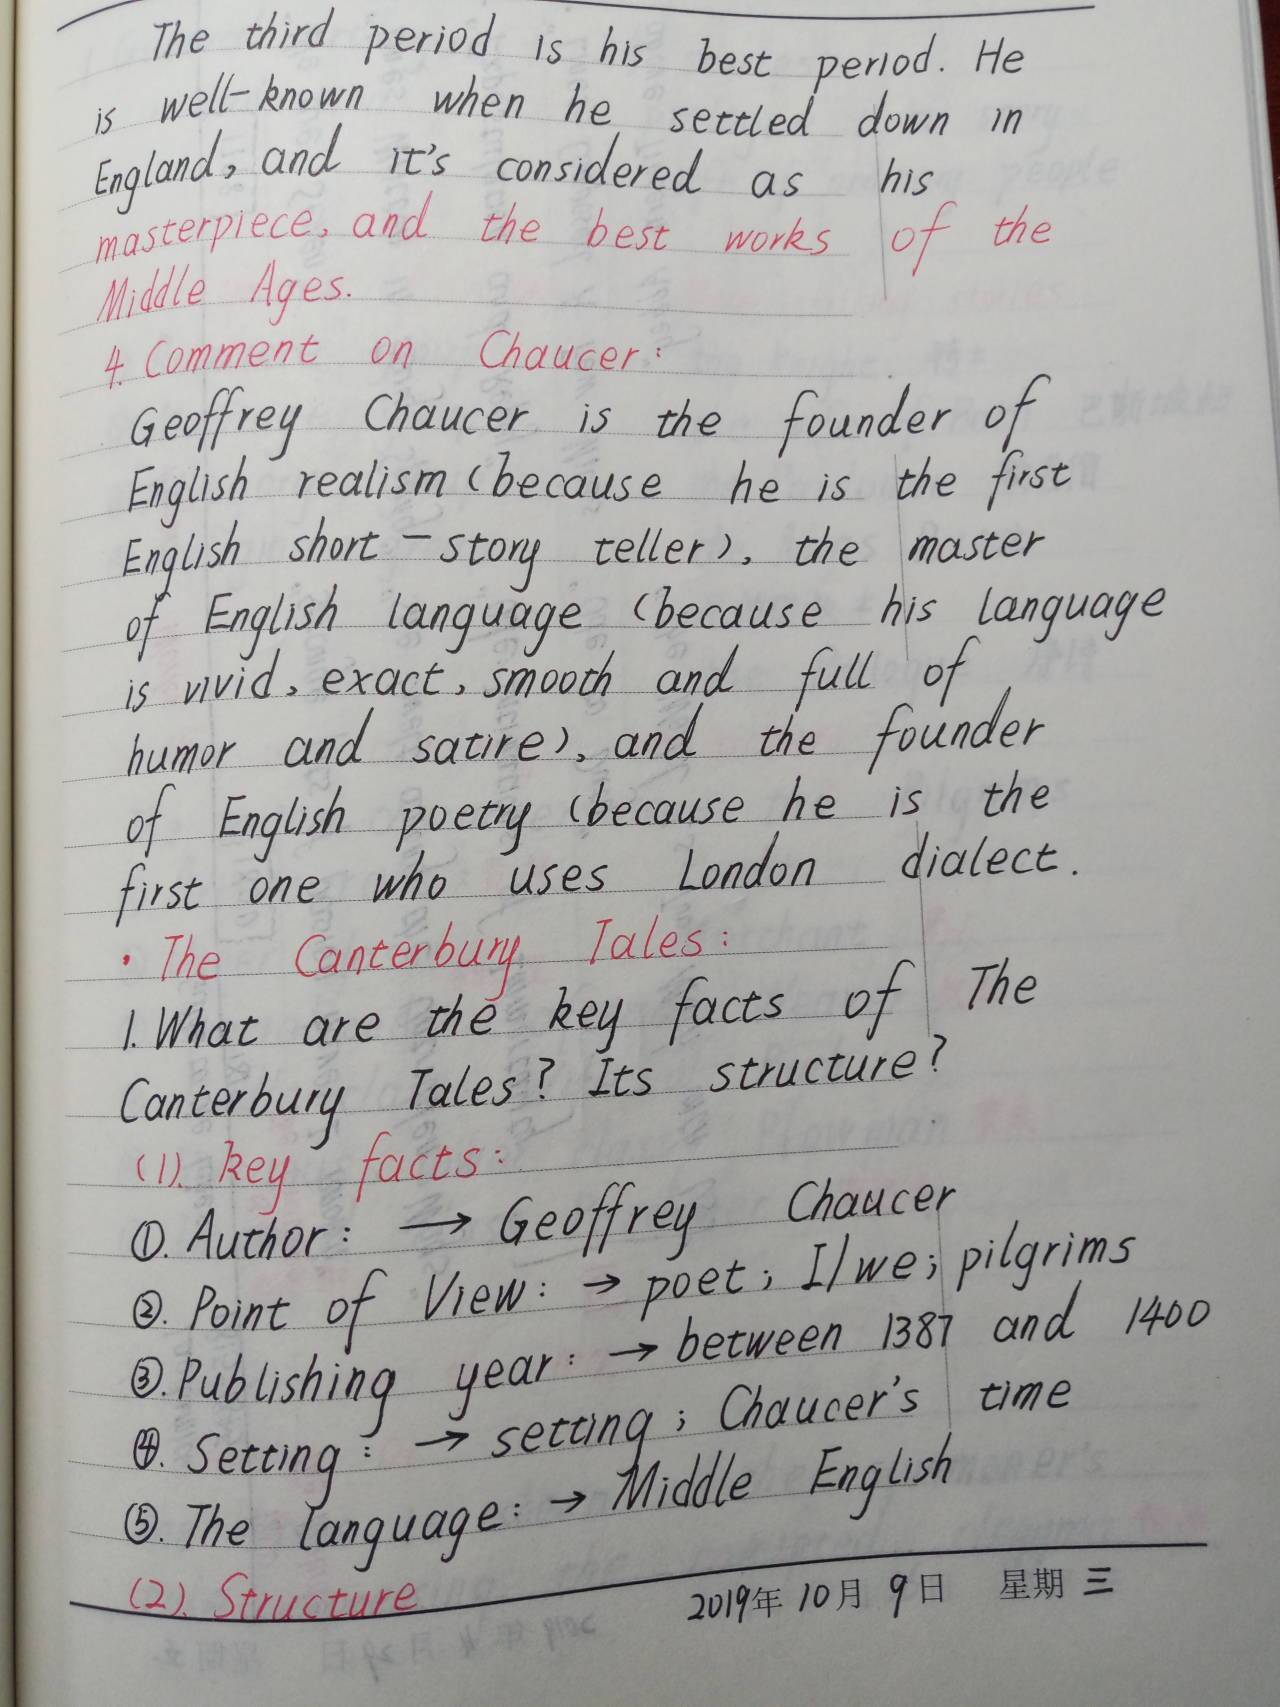 The third period is his best period. He
is well-known when he settled down in
England, and it's considered as his
masterpiece, and the best works of the
Middle Ages.
4. Comment on Chaucer:
Geoffrey Chaucer is the founder of
English realism (because he is the first
English short-story teller), the master
of English language (because his language
is vivid, exact, smooth and full of
humor and satire), and the founder
of English poetry (because he is the
first one who uses London dialect.
• The Canterbury Tales:
1. What are the key facts of The
Canterbury Tales? Its structure?
(1). key facts:
①. Author: → Geoffrey Chaucer
②. Point of View: → poet; I/we; pilgrims
③. Publishing year: → between 1387 and 1400
④. Setting: → setting; Chaucer's time
⑤. The language: → Middle English
(2). Structure
2019年 10月 9日 星期 三